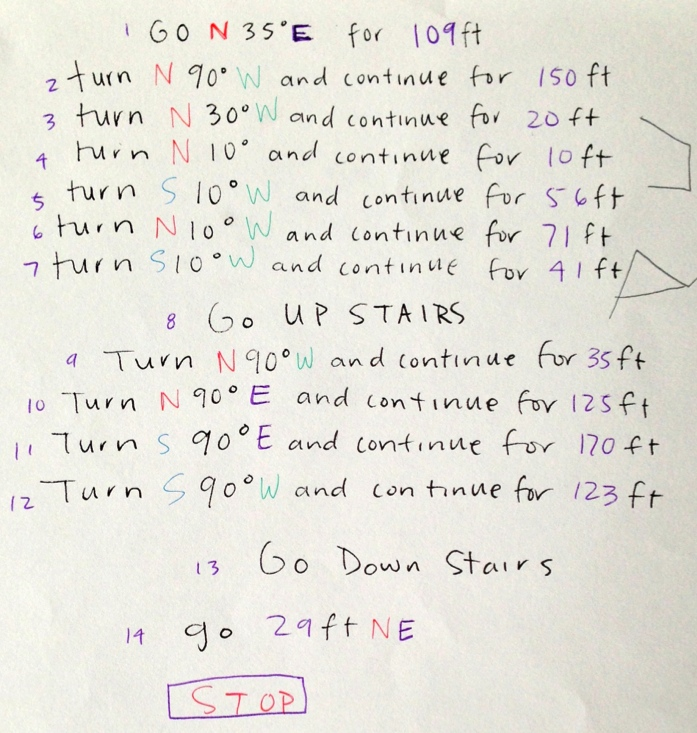 1 GO N 35°E for 109ft
2 turn N 90° W and continue for 150 ft
3 turn N 30° W and continue for 20 ft
4 turn N 10° and continue for 10 ft
5 turn S 10° W and continue for 56 ft
6 turn N 10° W and continue for 71 ft
7 turn S 10° W and continue for 41 ft
8 Go UP STAIRS
9 Turn N 90° W and continue for 35 ft
10 Turn N 90° E and continue for 125 ft
11 Turn S 90° E and continue for 170 ft
12 Turn S 90° W and continue for 123 ft
13 Go Down Stairs
14 go 29ft NE
STOP